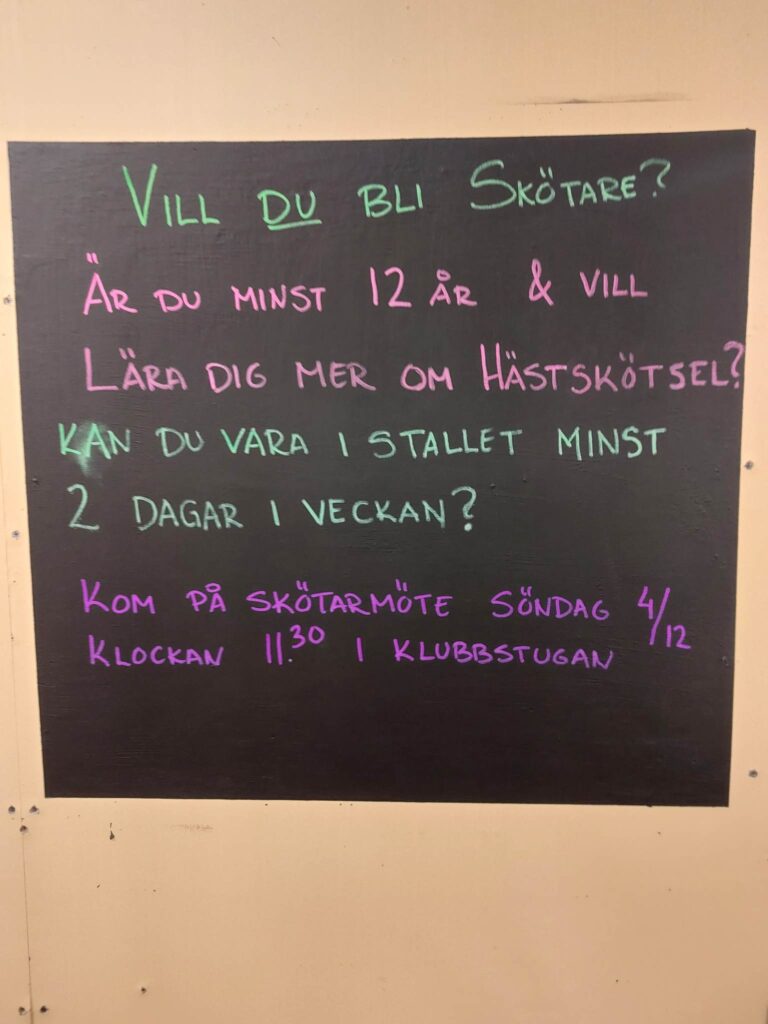 VILL DU BLI SKÖTARE?
ÄR DU MINST 12 ÅR & VILL
LÄRA DIG MER OM HÄSTSKÖTSEL?
KAN DU VARA I STALLET MINST
2 DAGAR I VECKAN?
KOM PÅ SKÖTARMÖTE SÖNDAG 4/12
KLOCKAN 11.30 I KLUBBSTUGAN